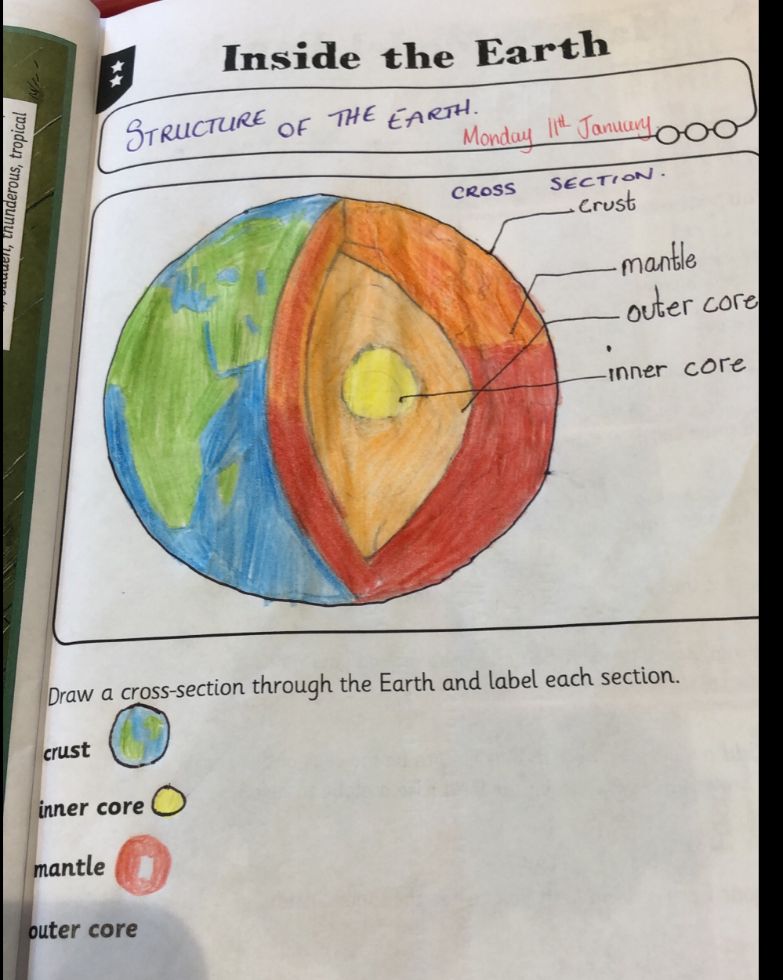 Inside the Earth
STRUCTURE OF THE EARTH.
Monday 11th January
CROSS SECTION.
crust
mantle
outer core
inner core
Draw a cross-section through the Earth and label each section.
crust
inner core
mantle
outer core
thunderous, tropical